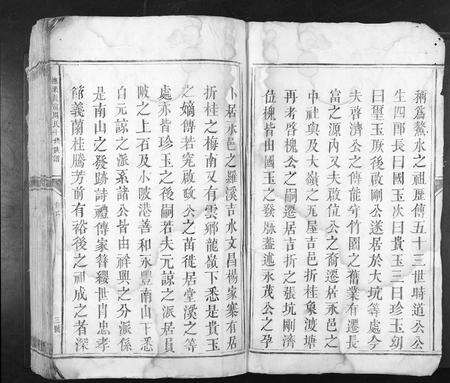 稱爲鰲水之祖歷傳五十三世時道公公
生四郎長曰國玉次曰貴玉三曰珍玉幼
曰里玉厥後啟剛公遂居於大坑等處今
夫啓濟公之傳能守竹園之舊業有遷長
富之源內又夫啟位公之裔遷居永邑之
中社與及大嶺之瓦屋吉邑折桂象渡塘
再考啓槐公之嗣遷居吉折之張坑剛濟
位槐皆由國玉之發脉蓋述永茂公之孕
卜居永邑之羅溪吉水文昌楊家寨有居
折桂之梅南又有雲鄉龍嶺下悉是貴玉
之嫡傳若究啟政公之苗徙居堂溪之等
處亦皆珍玉之後嗣若夫元諒之派居員
陂之上石及小陂港善和永豐南山下悉
自元諒之派系諸公皆由祥興之分派係
是南山之發跡詩禮傳家簪纓世胄忠孝
節義蘭桂騰芳前有裕後之祖成之者深